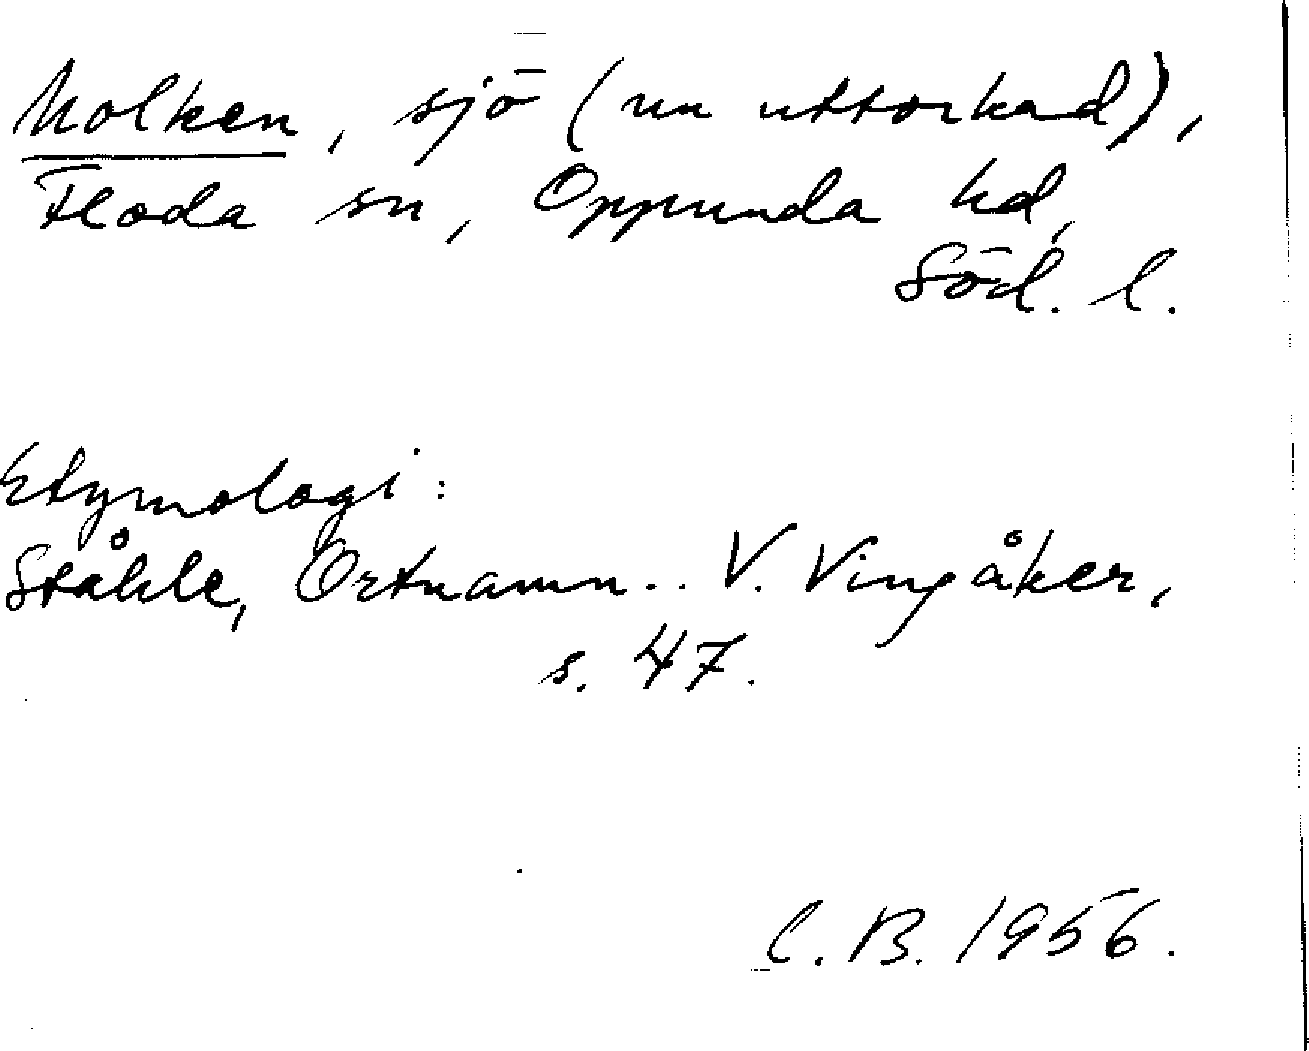 Molken, sjö (nu uttorkad),
Floda sn, Oppunda hd,
Söd. l.
Etymologi:
Ståhle, Ortnamn.. V. Vingåker,
s. 47.
C. B. 1956.